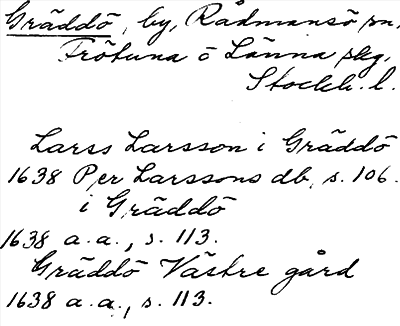 Gräddö, by, Rådmansö sn,
Frötuna o Länna skg,
Stockh. l.
Larss Larsson i Gräddö
1638 Per Larssons db, s. 106.
i Gräddö
1638 a.a., s. 113.
Gräddö Västre gård
1638 a.a., s. 113.